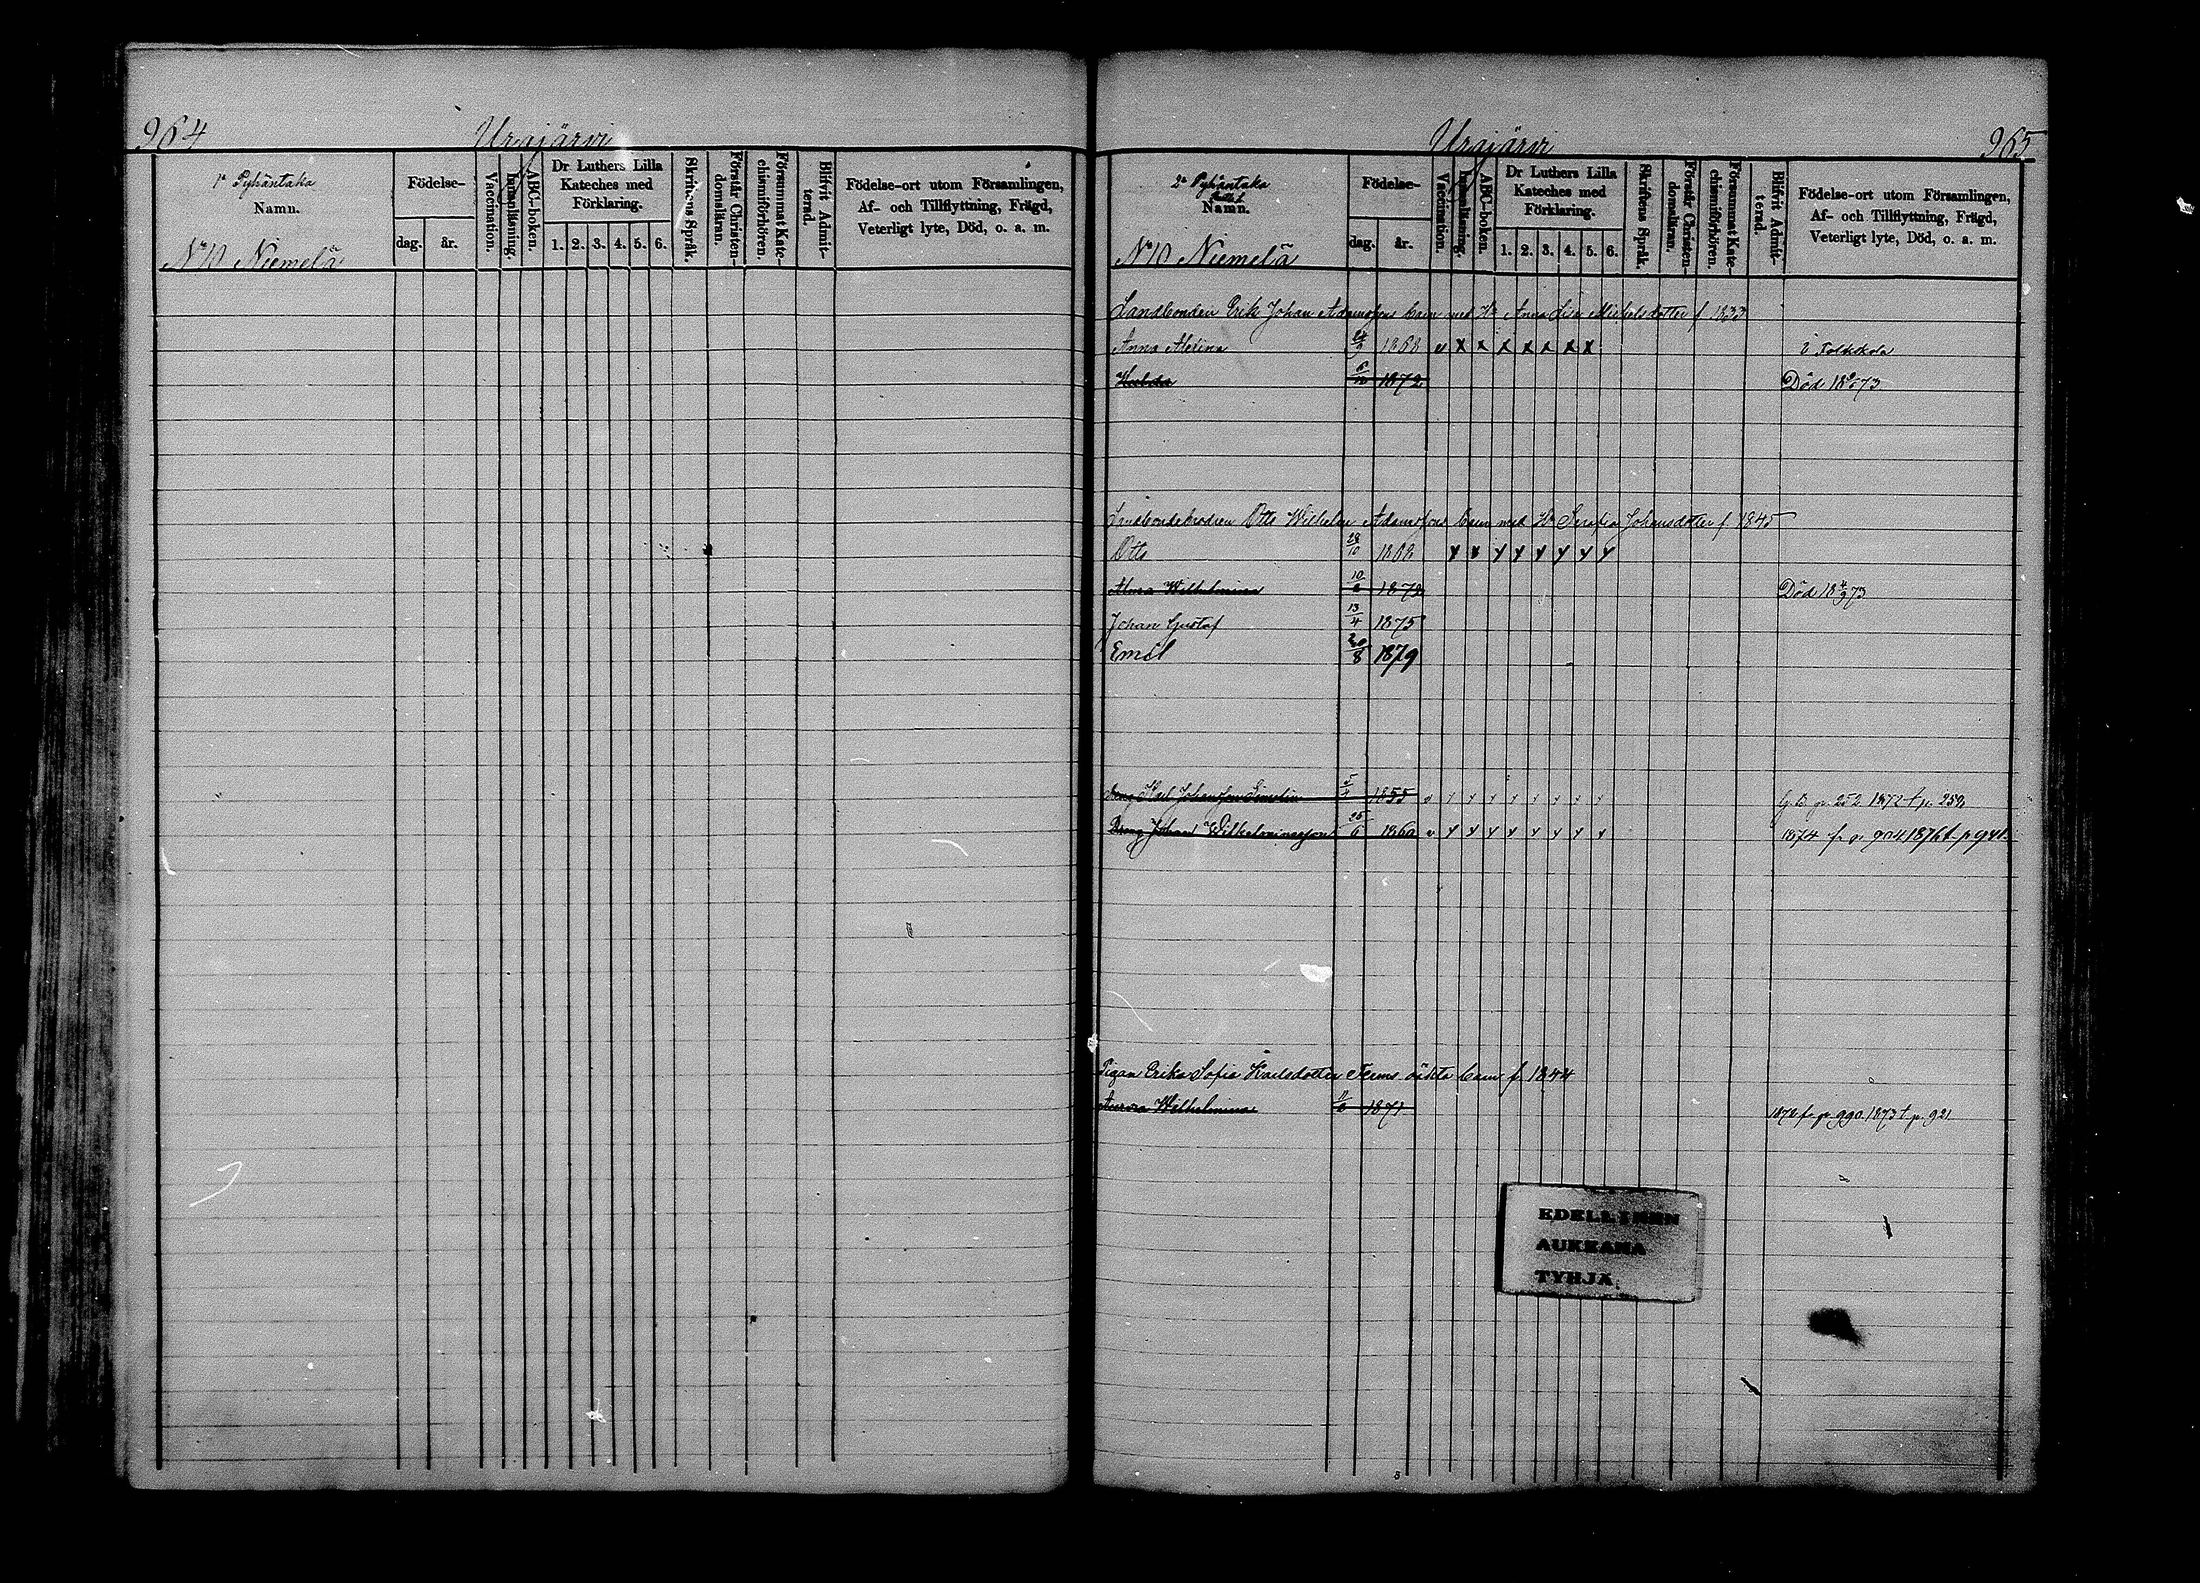 964
Urajärvi
1a Pyhäntaka
Namn.
No 10 Niemelä
Födelse-
dag.
år.
Vaccination.
Innanläsning.
ABC-boken.
Dr Luthers Lilla
Kateches med
Förklaring.
1. 2. 3. 4. 5. 6.
Skriftens Språk.
Förstår Christen-
domsläran.
Försummat Kate-
chismiförhören.
Blifvit Admit-
terad.
Födelse-ort utom Församlingen,
Af- och Tillflyttning, Frägd,
Veterligt lyte, Död, o. a. m.
Urajärvi
965
2a Pyhäntaka
Namn.
No 10 Niemelä
Födelse-
dag.
år.
Vaccination.
Innanläsning.
ABC-boken.
Dr Luthers Lilla
Kateches med
Förklaring.
1. 2. 3. 4. 5. 6.
Skriftens Språk.
Förstår Christen-
domsläran.
Försummat Kate-
chismiförhören.
Blifvit Admit-
terad.
Födelse-ort utom Församlingen,
Af- och Tillflyttning, Frägd,
Veterligt lyte, Död, o. a. m.
Landbonden Erik Johan Adamsons barn med Hu Anna Lisa Michelsdotter f 1833
Anna 1868 v x x x x x x x i Folkskola
Hulda 1872 Död 18 73
Landbondebrodren Otto Wilhelm Adamsons barn med Hu Serafia Johansdotter f. 1845
Otto 28/10 1868 x x x x x x x x
Alma Wilhelmina 10/2 1872 Död 18 4/9 73
Johan Gustaf 13/4 1875
Emil 20/8 1879
Dreng Karl Johansson 1855 v x x x x x x x x 252 1872 t p. 252
Dreng Johan Wilhelminasson 26/6 1860 v x x x x x x x x 1874 fr p. 1876 t. p
Pigan Erika Sofia Karlsdotter oäkta barn f 1844
Aurora Wilhelmina 1871 1872 fr p. 990. 1873 t p. 921
EDELLINEN
AUKEAMA
TYHJÄ